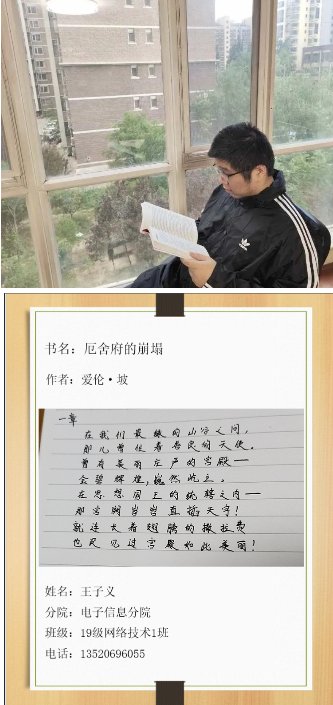 adidas
书名：厄舍府的崩塌
作者：爱伦·坡
一章
在我们最绿的山谷之间，
那儿曾住着善良的天使，
曾有美丽庄严的宫殿——
金碧辉煌，巍然屹立。
在思想国王的统辖之内——
那宫殿岿岿直插天宇！
就连长着翅膀的撒拉弗
也只见过宫殿如此美丽！
姓名：王子义
分院：电子信息分院
班级：19级网络技术1班
电话：13520696055